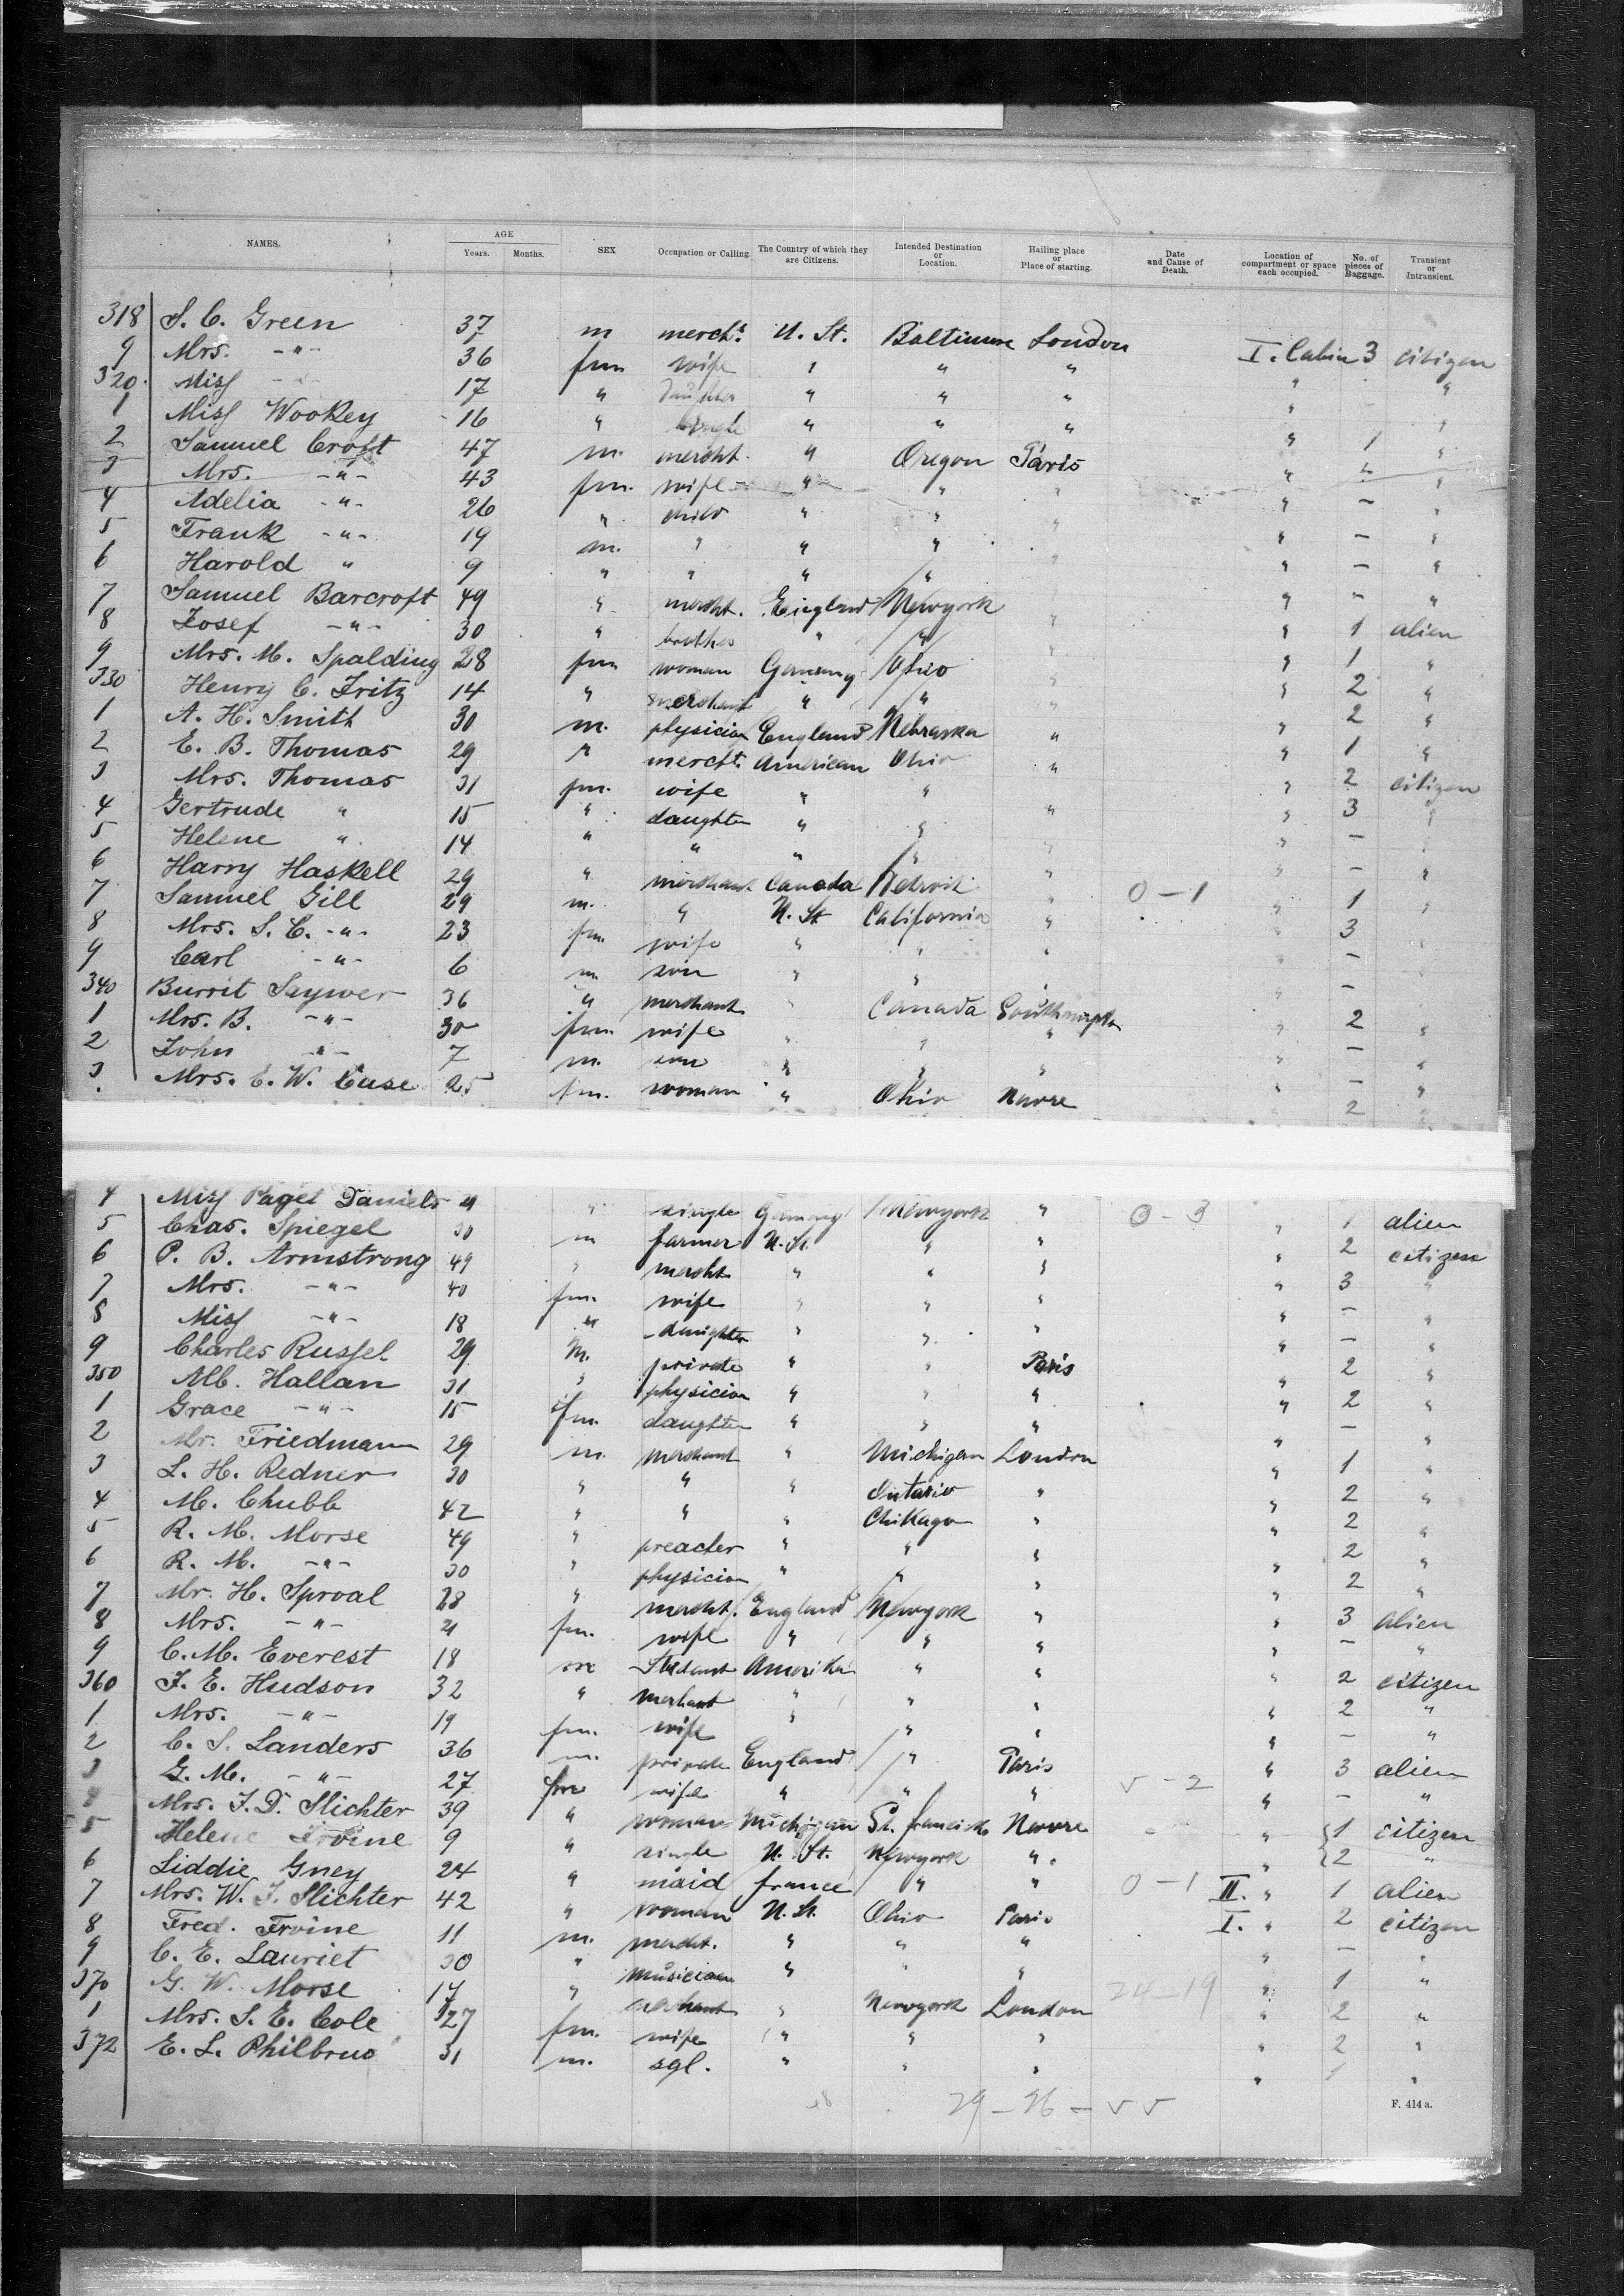 NAMES. AGE Years. Months. SEX Occupation or Calling. The Country of which they are Citizens. Intended Destination or Location. Hailing place or Place of starting. Date and Cause of Death. Location of compartment or space each occupied. No. of pieces of Baggage. Transient or Intransient.
318 S. C. Green 37 m mercht. U. St. Baltimore London I. Cabin 3 citizen
9 Mrs. -"- 36 fm. wife " " " " "
320. Miss -"- 17 " daughter " " " " "
1 Miss Wookey 16 " single " " " " 1 "
2 Samuel Croft 47 m. mercht. " Oregon Paris " 4 "
3 Mrs. -"- 43 fm. wife " " " " - "
4 Adelia -"- 26 " child " " " " - "
5 Frank -"- 19 m. " " " " " - "
6 Harold " 9 " " " " " " - "
7 Samuel Barcroft 49 " mercht. England Newyork " " 1 alien
8 Josef -"- 30 " brother " " " " 1 "
9 Mrs. M. Spalding 28 fm woman Germany Ohio " " 2 "
330 Henry C. Fritz 14 " merchant " " " " 2 "
1 A. H. Smith 30 m. physician England Nebraska " " 1 "
2 E. B. Thomas 29 " mercht. American Ohio " " 2 citizen
3 Mrs. Thomas 31 fm. wife " " " 3 "
4 Gertrude " 15 " daughter " " " " - "
5 Helene " 14 " " " " " " - "
6 Harry Haskell 29 " merchant Canada Detroit " 0 - 1 " 1 "
7 Samuel Gill 29 m. " U. St California " " 3
8 Mrs. S. C. -"- 23 fm. wife " " " " -
9 Carl -"- 6 m. son " " " " -
340 Burrit Saywer 36 " merchant " Canada Southampton " 2 "
1 Mrs. B. -"- 30 fm. wife " " " " - "
2 John -"- 7 m. son " " " " - "
3 Mrs. E. W. Case 25 fm. woman " Ohio Havre " 2 "
4 Miss Paget Daniels 21 " single Germany Newyork " 0 - 3 " 1 alien
5 Chas. Spiegel 30 m farmer U. St. " " " 2 citizen
6 P. B. Armstrong 49 " mercht " " " " 3 "
7 Mrs. -"- 40 fm. wife " " " " - "
8 Miss -"- 18 " daughter " " " " - "
9 Charles Russel 29 M. private " " Paris " 2 "
350 Alb. Hallan 31 " physician " " " " 2 "
1 Grace -"- 15 fm. daughter " " " " - "
2 Mr. Friedmann 29 m. merchant " Michigan London " 1 "
3 L. H. Redner 30 " " " Ontario " " 2 "
4 M. Chubb 42 " " " Chikago " " 2 "
5 R. M. Morse 49 " preacher " " " " 2 "
6 R. M. -"- 30 " physician " " " " 2 "
7 Mr. H. Sproal 28 " mercht. England Newyork " " 3 alien
8 Mrs. -"- 21 fm. wife " " " " - "
9 C. M. Everest 18 m Student Amerika " " " 2 citizen
360 F. E. Hudson 32 " merhant " " " " 2 "
1 Mrs. -"- 19 fm. wife " " " " - "
2 C. S. Landers 36 m. private England " Paris " 3 alien
3 G. M. -"- 27 fm wife " " " v - 2 " - "
Mrs. F. D. Slichter 39 " woman Michigan St. francisk Havre " 1 citizen
5 Helene Irvine 9 " single U. St. Newyork " " 2 "
6 Liddie Gney 24 " maid france " " 0 - 1 II. " 1 alien
7 Mrs. W. F. Slichter 42 " woman U. St. Ohio Paris I. " 2 citizen
8 Fred. Irvine 11 m. mercht. " " " " - "
9 C. E. Lauriet 30 " musician " " " " 1 "
370 G. W. Morse 17 " merchant " Newyork London 24 - 19 " 2 "
1 Mrs. S. E. Cole 27 fm. wife " " " " 2 "
372 E. L. Philbruc 31 m. sgl. " " " " 1 "
F. 414 a.